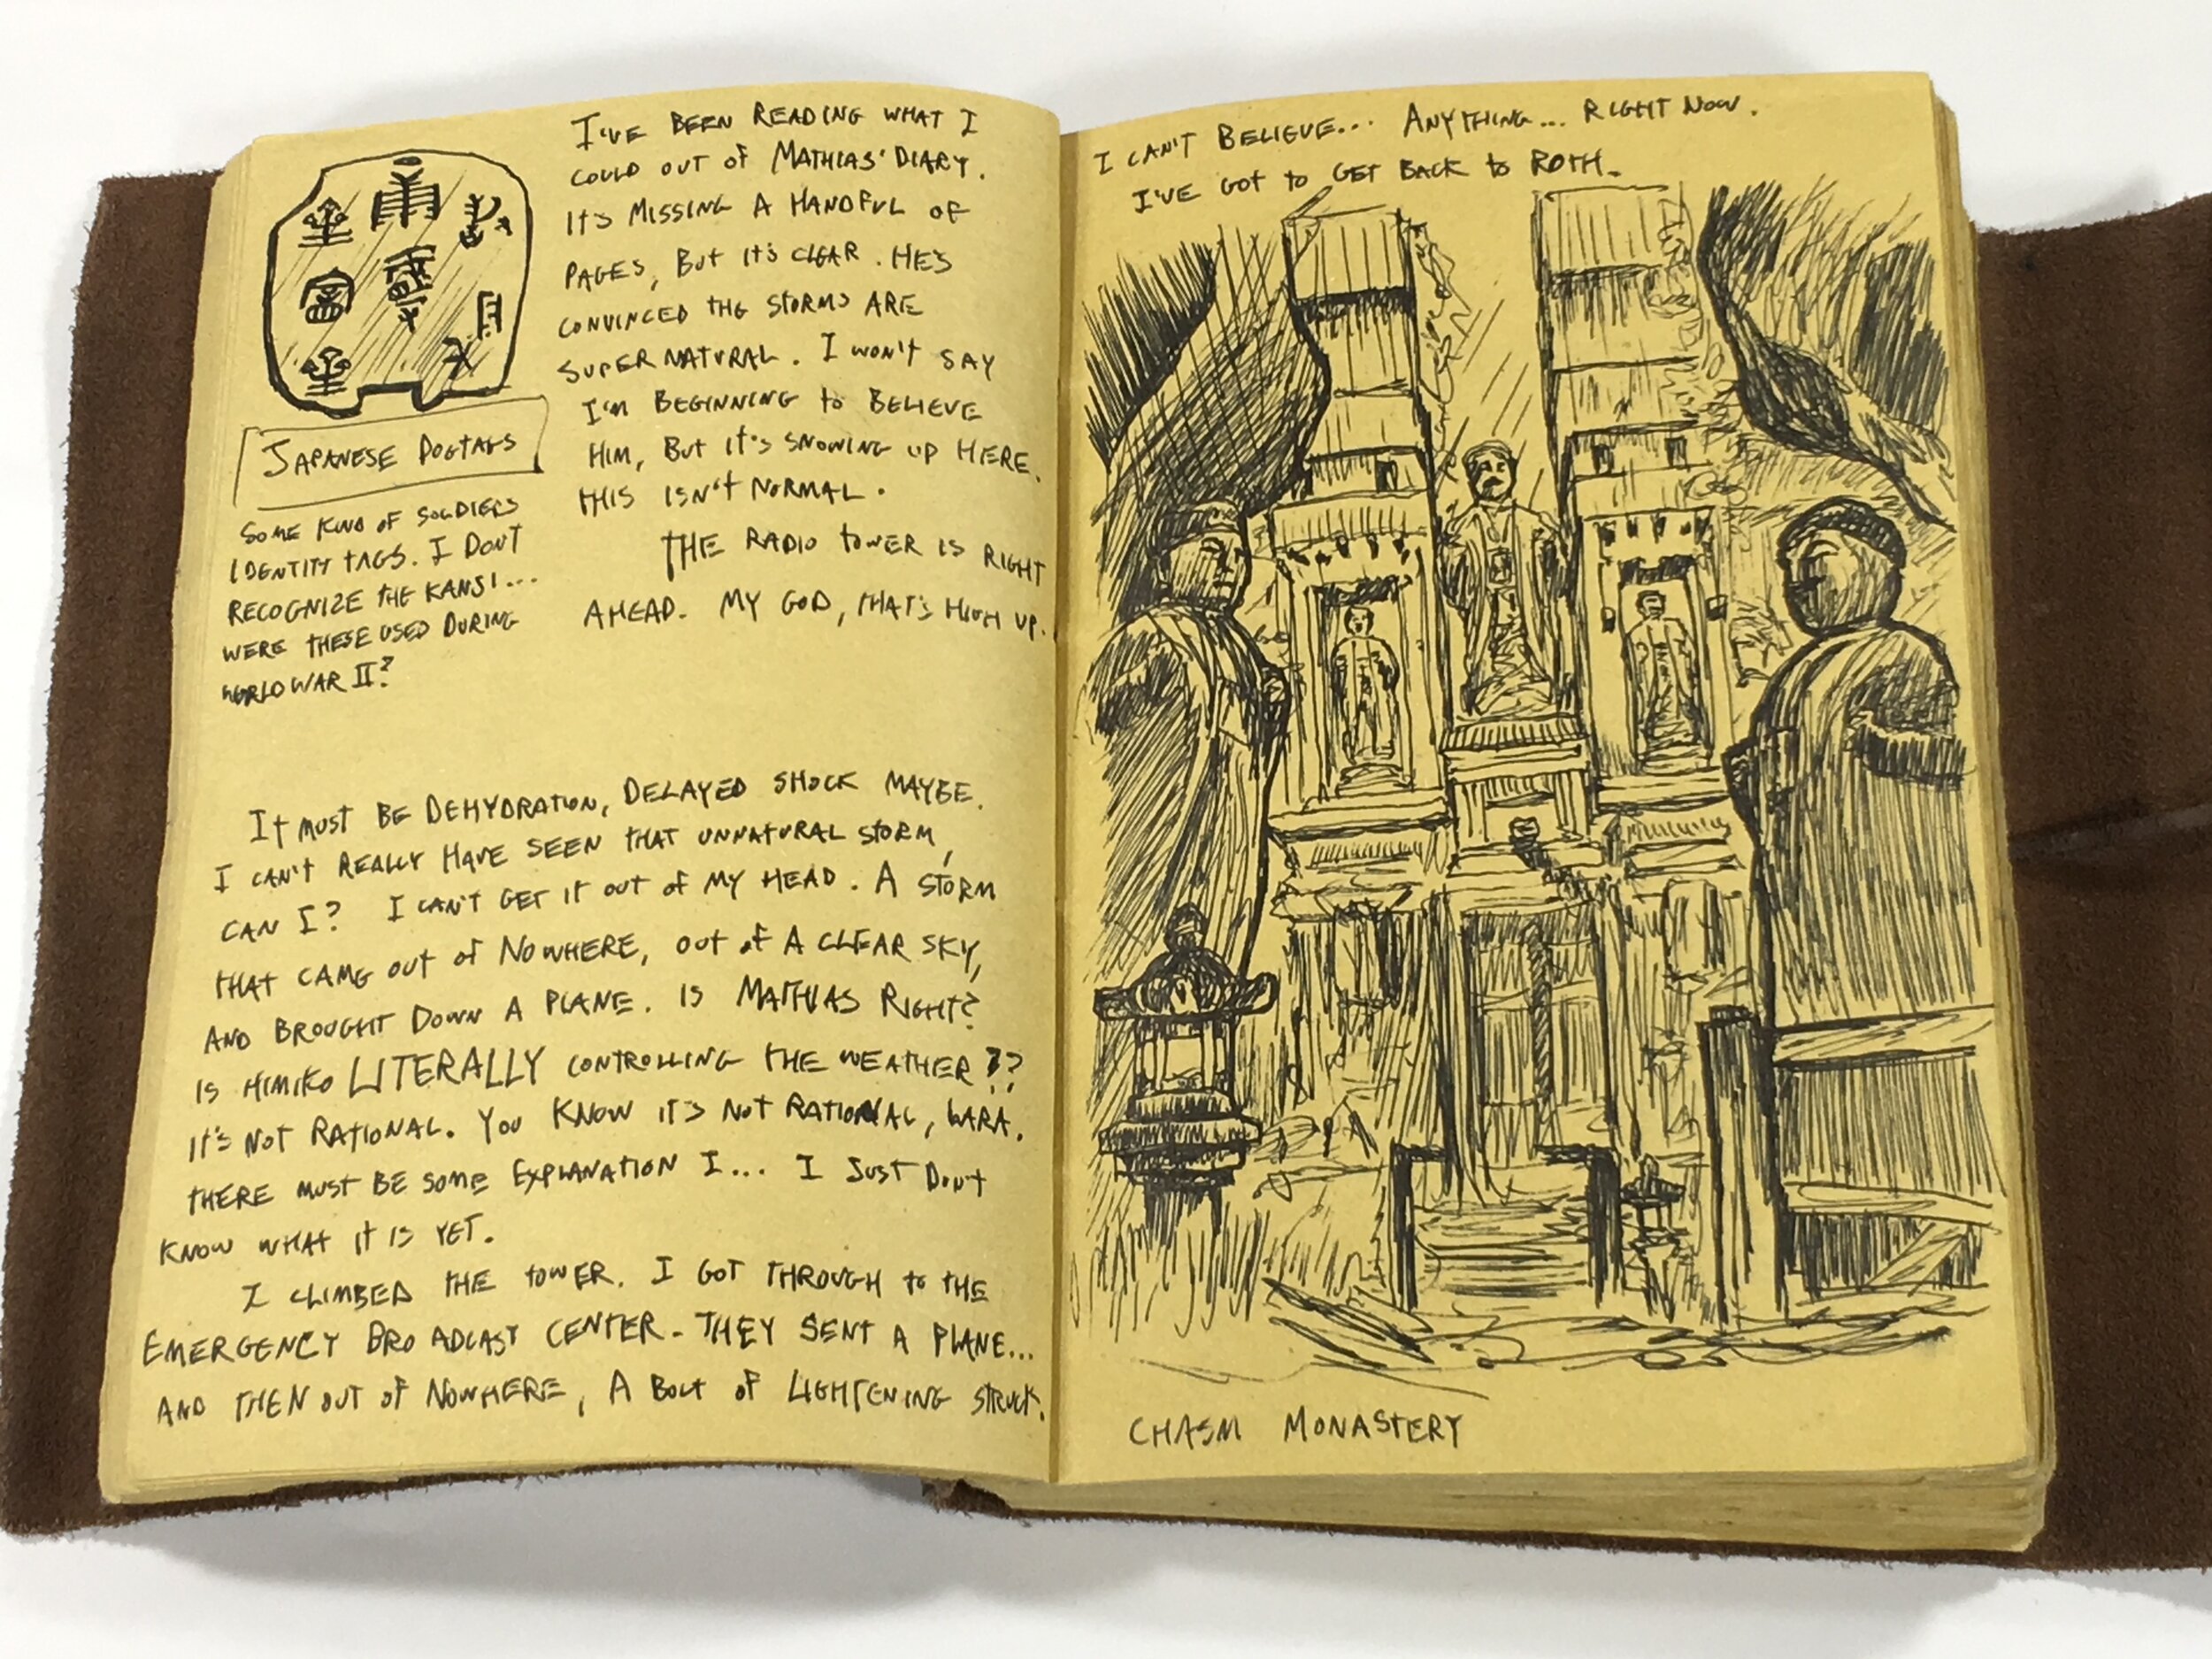 I'VE BEEN READING WHAT I
COULD OUT OF MATHIAS' DIARY.
IT'S MISSING A HANDFUL OF
PAGES, BUT IT'S CLEAR. HE'S
CONVINCED THE STORMS ARE
SUPERNATURAL. I WON'T SAY
I'M BEGINNING TO BELIEVE
HIM, BUT IT'S SNOWING UP HERE.
THIS ISN'T NORMAL.
THE RADIO TOWER IS RIGHT
AHEAD. MY GOD, THAT'S HIGH UP.
JAPANESE DOGTAGS
SOME KIND OF SOLDIERS
IDENTITY TAGS. I DON'T
RECOGNIZE THE KANJI...
WERE THESE USED DURING
WORLD WAR II?
IT MUST BE DEHYDRATION, DELAYED SHOCK MAYBE.
I CAN'T REALLY HAVE SEEN THAT UNNATURAL STORM,
CAN I? I CAN'T GET IT OUT OF MY HEAD. A STORM
THAT CAME OUT OF NOWHERE, OUT OF A CLEAR SKY,
AND BROUGHT DOWN A PLANE. IS MATHIAS RIGHT?
IS HIMIKO LITERALLY CONTROLLING THE WEATHER??
IT'S NOT RATIONAL. YOU KNOW IT'S NOT RATIONAL, LARA.
THERE MUST BE SOME EXPLANATION I... I JUST DON'T
KNOW WHAT IT IS YET.
I CLIMBED THE TOWER. I GOT THROUGH TO THE
EMERGENCY BROADCAST CENTER. THEY SENT A PLANE...
AND THEN OUT OF NOWHERE, A BOLT OF LIGHTENING STRUCK.
I CAN'T BELIEVE... ANYTHING... RIGHT NOW.
I'VE GOT TO GET BACK TO ROTH.
CHASM MONASTERY